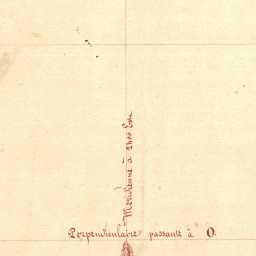 Méridienne à 2400 Est
Perpendiculaire passante à O.